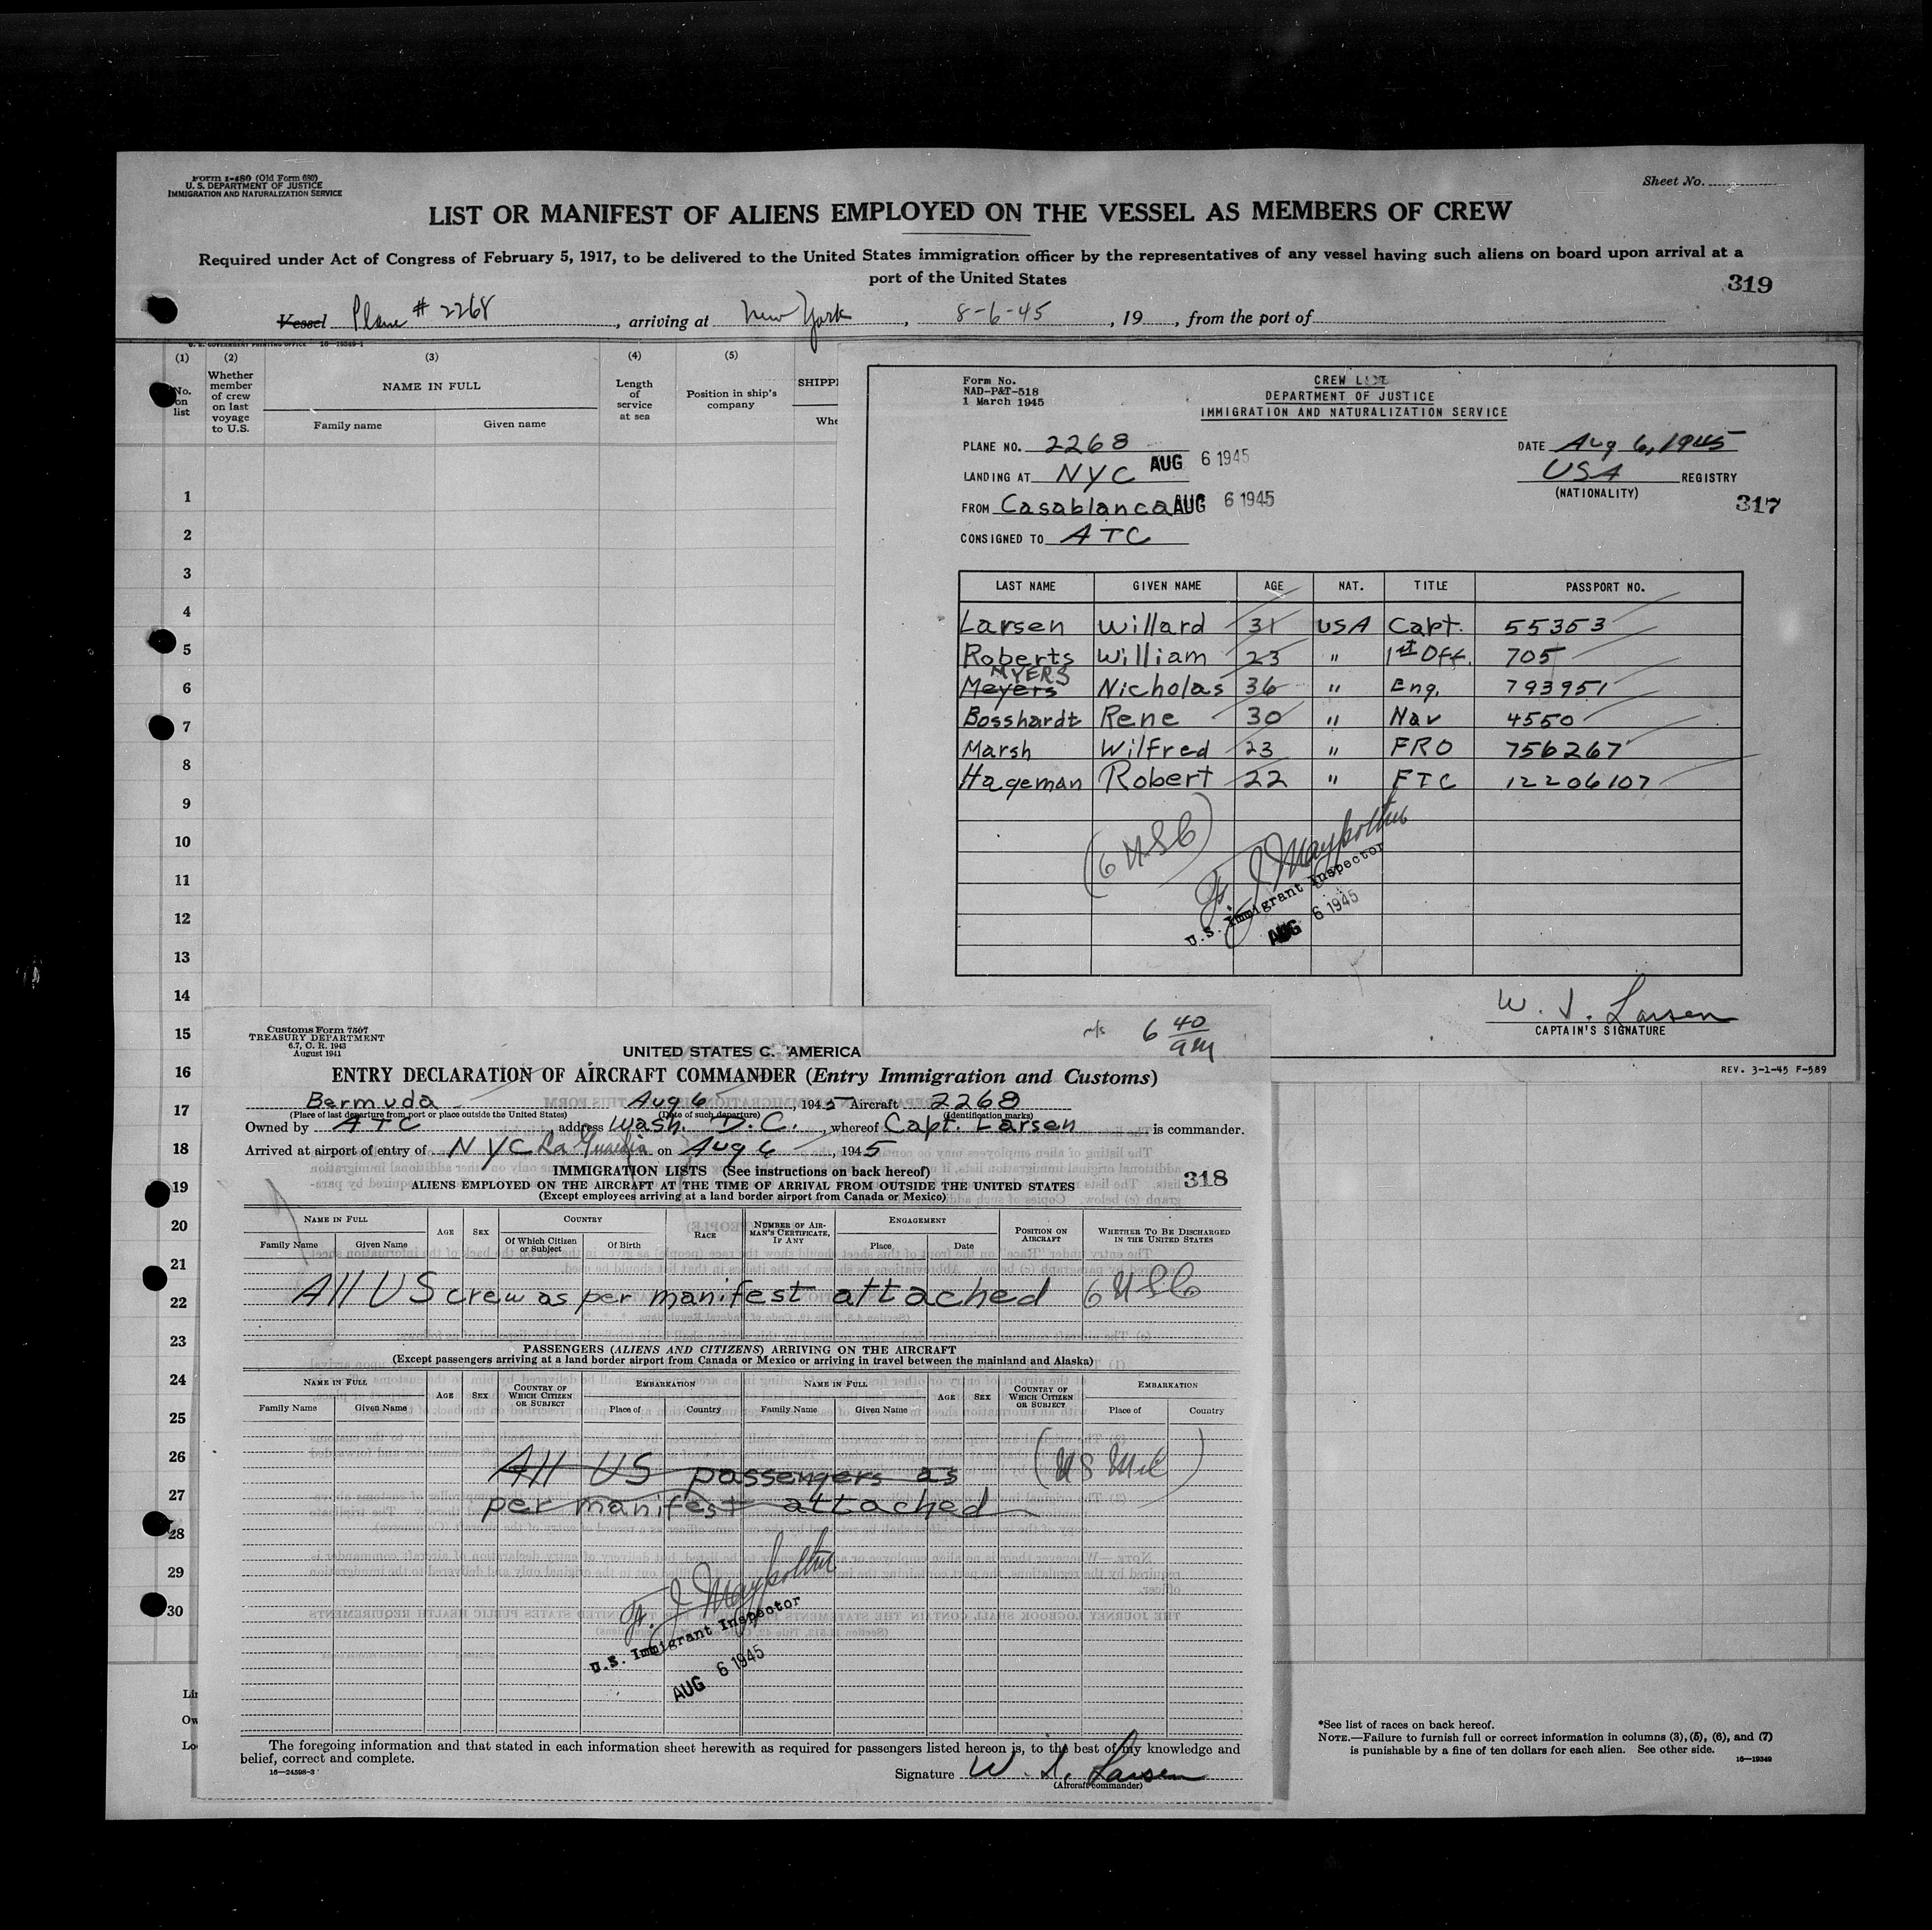 Form I-480 (Old Form 680)
U. S. DEPARTMENT OF JUSTICE
IMMIGRATION AND NATURALIZATION SERVICE
Sheet No.
LIST OR MANIFEST OF ALIENS EMPLOYED ON THE VESSEL AS MEMBERS OF CREW
Required under Act of Congress of February 5, 1917, to be delivered to the United States immigration officer by the representatives of any vessel having such aliens on board upon arrival at a
port of the United States
319
Vessel Plane # 2268, arriving at New York, 8-6-45, 19, from the port of
U. S. GOVERNMENT PRINTING OFFICE 16-19349-1
(1) (2) (3) (4) (5)
No. on list
Whether member of crew on last voyage to U.S.
NAME IN FULL
Family name Given name
Length of service at sea
Position in ship's company
SHIPPI
Whe
1
2
3
4
5
6
7
8
9
10
11
12
13
14
15
16
17
18
19
20
21
22
23
24
25
26
27
28
29
30
Lin
Ow
Lo
Form No.
NAD-P&T-518
1 March 1945
CREW LIST
DEPARTMENT OF JUSTICE
IMMIGRATION AND NATURALIZATION SERVICE
PLANE NO. 2268
DATE Aug 6, 1945
LANDING AT NYC AUG 6 1945
USA REGISTRY
(NATIONALITY)
FROM Casablanca AUG 6 1945
317
CONSIGNED TO ATC
LAST NAME GIVEN NAME AGE NAT. TITLE PASSPORT NO.
Larsen Willard 31 USA Capt. 55353
Roberts William 23 " 1st Off. 705
MYERS
Meyers Nicholas 36 " Eng. 793951
Bosshardt Rene 30 " Nav 4550
Marsh Wilfred 23 " FRO 756267
Hageman Robert 22 " FTC 12206107
(6 USC)
U.S. Immigrant Inspector
AUG 6 1945
W. J. Larsen
CAPTAIN'S SIGNATURE
REV. 3-1-45 F-589
Customs Form 7507
TREASURY DEPARTMENT
6.7, C. R. 1943
August 1941
6 40
am
UNITED STATES C. AMERICA
ENTRY DECLARATION OF AIRCRAFT COMMANDER (Entry Immigration and Customs)
Bermuda Aug 6, 1945 Aircraft 2268
(Place of last departure from port or place outside the United States) (Date of such departure) (Identification marks)
Owned by ATC, address Wash. D.C., whereof Capt. Larsen is commander.
Arrived at airport of entry of NYC La Guardia on Aug 6, 1945
IMMIGRATION LISTS (See instructions on back hereof)
318
ALIENS EMPLOYED ON THE AIRCRAFT AT THE TIME OF ARRIVAL FROM OUTSIDE THE UNITED STATES
(Except employees arriving at a land border airport from Canada or Mexico)
NAME IN FULL
Family Name Given Name
AGE SEX
COUNTRY
Of Which Citizen or Subject Of Birth
RACE
NUMBER OF AIRMAN'S CERTIFICATE, IF ANY
ENGAGEMENT
Place Date
POSITION ON AIRCRAFT
WHETHER TO BE DISCHARGED IN THE UNITED STATES
All US crew as per manifest attached 6 USC
PASSENGERS (ALIENS AND CITIZENS) ARRIVING ON THE AIRCRAFT
(Except passengers arriving at a land border airport from Canada or Mexico or arriving in travel between the mainland and Alaska)
NAME IN FULL AGE SEX COUNTRY OF WHICH CITIZEN OR SUBJECT EMBARKATION NAME IN FULL AGE SEX COUNTRY OF WHICH CITIZEN OR SUBJECT EMBARKATION
Family Name Given Name Place of Country Family Name Given Name Place of Country
All US passengers as
per manifest attached
(US Mil)
U.S. Immigrant Inspector
AUG 6 1945
The foregoing information and that stated in each information sheet herewith as required for passengers listed hereon is, to the best of my knowledge and
belief, correct and complete.
16-24598-3
Signature W. J. Larsen
(Aircraft commander)
*See list of races on back hereof.
NOTE.—Failure to furnish full or correct information in columns (3), (5), (6), and (7)
is punishable by a fine of ten dollars for each alien. See other side.
16-19349